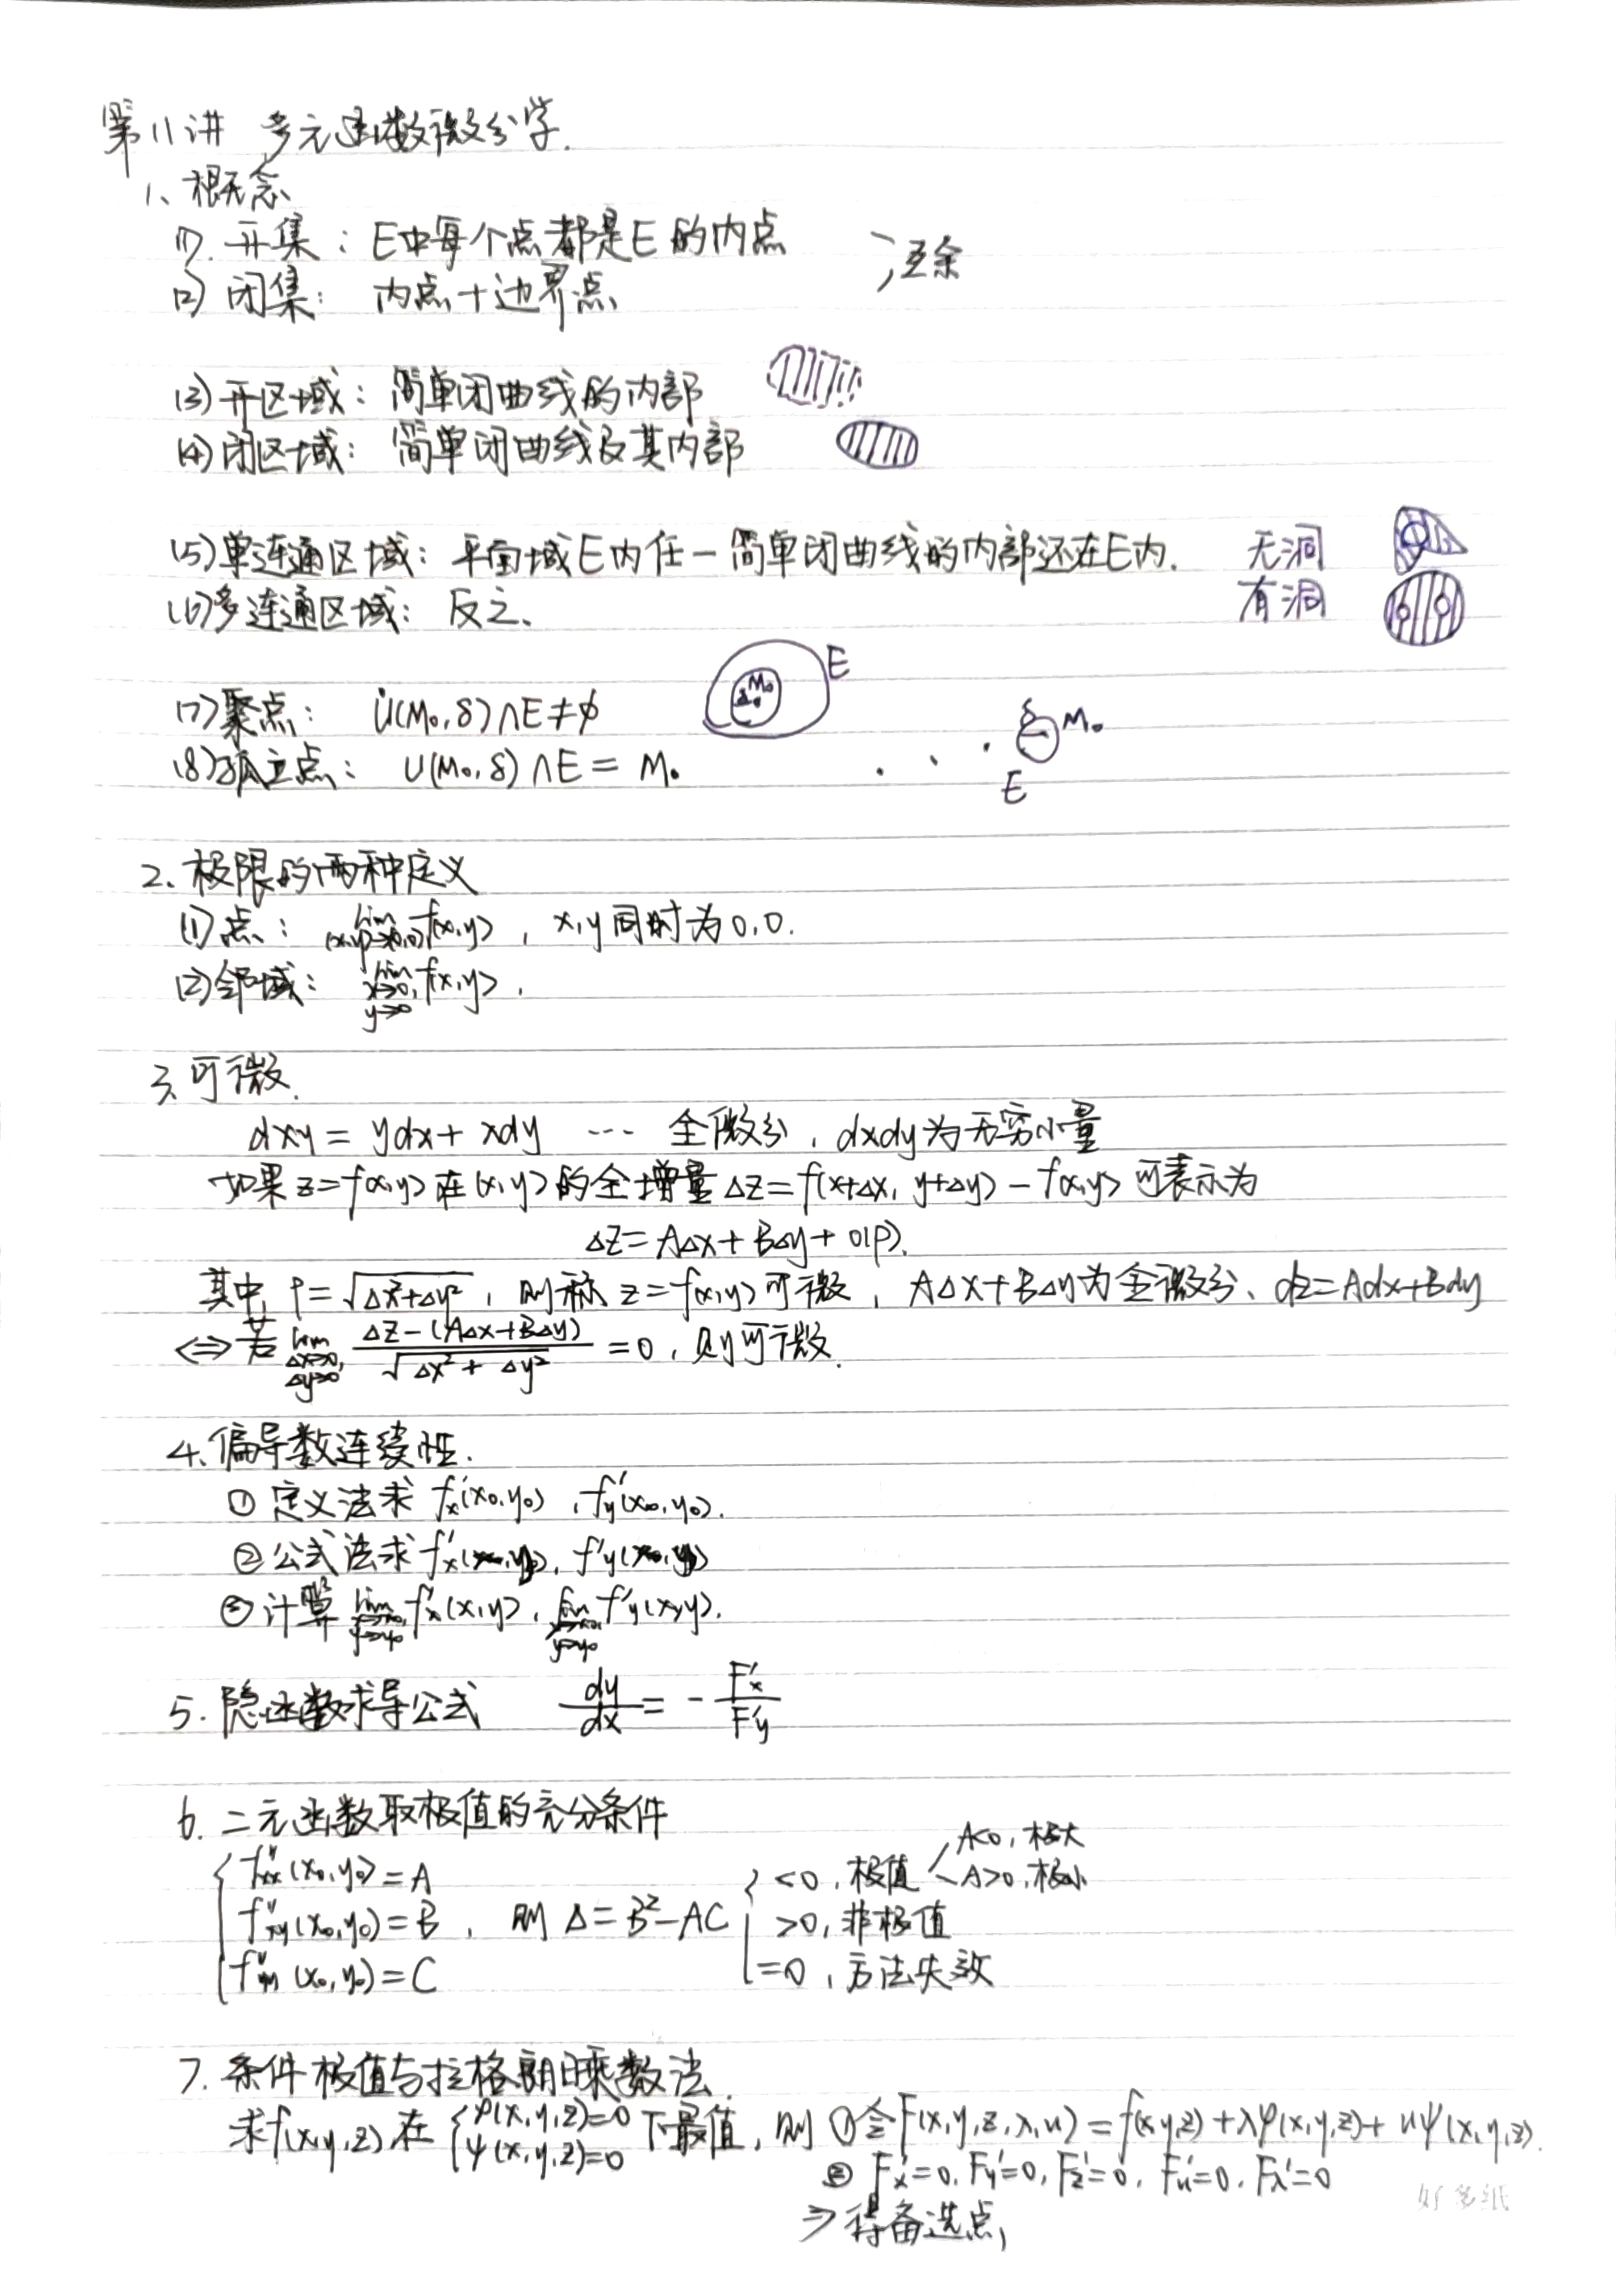 第11讲 多元函数微分学.
1、概念
(1). 开集：E中每个点都是E的内点 } 互余
(2) 闭集： 内点+边界点
(3) 开区域：简单闭曲线的内部
(4) 闭区域：简单闭曲线及其内部
(5) 单连通区域：平面域E内任一简单闭曲线的内部还在E内. 无洞
(6) 多连通区域：反之、 有洞
(7) 聚点： U̇(M₀,δ)∩E≠∅ M₀ E
(8) 孤立点： U(M₀,δ)∩E = M₀ δ M₀ E
2、极限的两种定义
(1) 点： lim_{(x,y)→(0,0)} f(x,y) , x,y同时为0,0.
(2) 邻域： lim_{x→0, y→0} f(x,y) .
3、可微.
dxy = ydx + xdy … 全微分, dxdy为无穷小量
如果z=f(x,y)在(x,y)的全增量Δz=f(x+Δx, y+Δy)-f(x,y)可表示为
Δz=AΔx+BΔy+o(ρ).
其中, ρ=√(Δx²+Δy²), 则称z=f(x,y)可微, AΔx+BΔy为全微分、dz=Adx+Bdy
⇔ 若 lim_{Δx→0, Δy→0} (Δz-(AΔx+BΔy))/√(Δx²+Δy²) =0, 则可微.
4、偏导数连续性.
① 定义法求 f'x(x₀,y₀) , f'y(x₀,y₀).
② 公式法求 f'x(x,y), f'y(x,y)
③ 计算 lim_{x→x₀, y→y₀} f'x(x,y), lim_{x→x₀, y→y₀} f'y(x,y).
5. 隐函数求导公式 dy/dx = - F'x/F'y
6. 二元函数取极值的充分条件
{ f''xx(x₀,y₀)=A
f''xy(x₀,y₀)=B , 则Δ=B²-AC
f''yy(x₀,y₀)=C
{ <0, 极值 < A<0, 极大
A>0, 极小
>0, 非极值
=0, 方法失效
7. 条件极值与拉格朗日乘数法.
求f(x,y,z)在 { φ(x,y,z)=0 ψ(x,y,z)=0 下最值, 则 ①令F(x,y,z,λ,u)=f(x,y,z)+λφ(x,y,z)+uψ(x,y,z).
② Fx'=0, Fy'=0, Fz'=0, Fu'=0, Fλ'=0
⇒ 得备选点,
好多纸